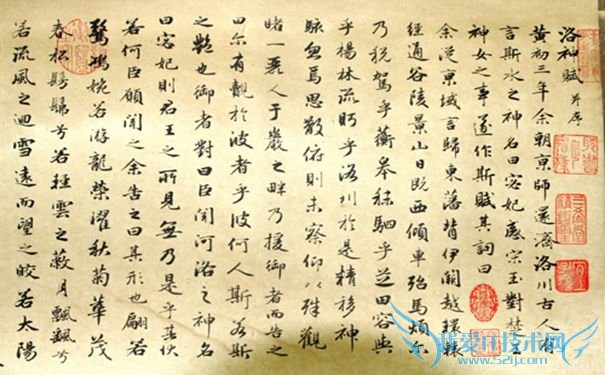 洛神賦 并序
黃初三年余朝京師還濟洛川古人有
言斯水之神名曰宓妃感宋玉對楚王
神女之事遂作斯賦其詞曰
余從京域言歸東藩背伊闕越轘轅
經通谷陵景山日既西傾車殆馬煩尒
乃稅駕乎蘅皋秣駟乎芝田容與
乎楊林流眄乎洛川於是精移神
駭忽焉思散俯則未察仰以殊觀
睹一麗人于巖之畔乃援御者而告之
曰尒有覿於彼者乎彼何人斯若斯
之豔也御者對曰臣聞河洛之神名
曰宓妃則君王之所見無乃是乎其狀
若何臣願聞之余告之曰其形也翩若
驚鴻婉若游龍榮曜秋菊華茂
春松髣髴兮若輕雲之蔽月飄飄兮
若流風之迴雪遠而望之皎若太陽
我爱IT技术网